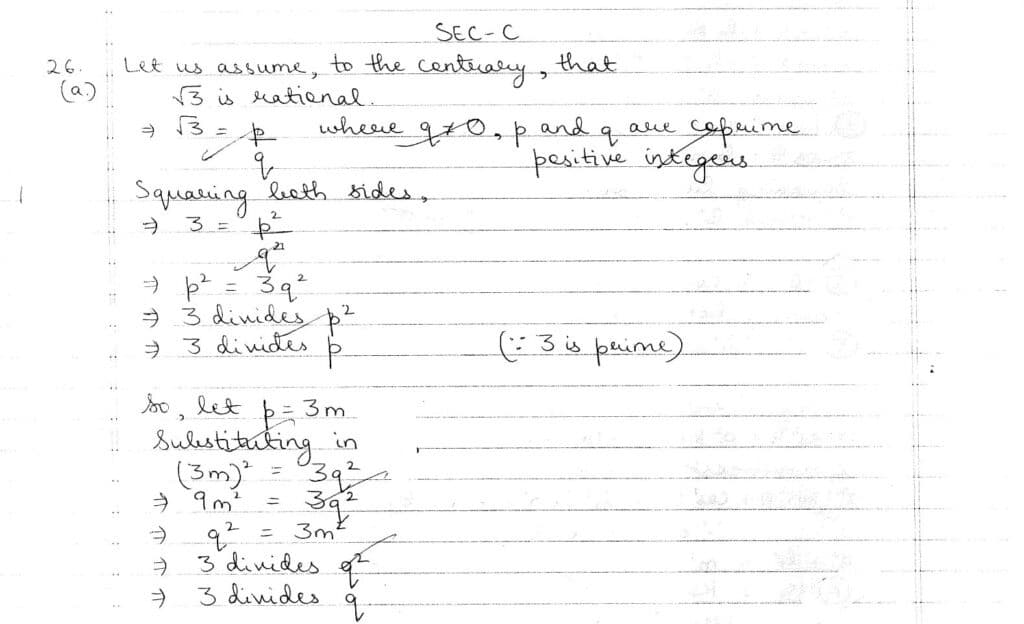 SEC-C
26. Let us assume, to the contrary, that
(a.) √3 is rational.
⇒ √3 = p/q where q≠0, p and q are coprime
positive integers
1 Squaring both sides,
⇒ 3 = p²/q²
⇒ p² = 3q²
⇒ 3 divides p²
⇒ 3 divides p (∵ 3 is prime)
So, let p = 3m
Substituting in
(3m)² = 3q²
⇒ 9m² = 3q²
⇒ q² = 3m²
⇒ 3 divides q²
⇒ 3 divides q